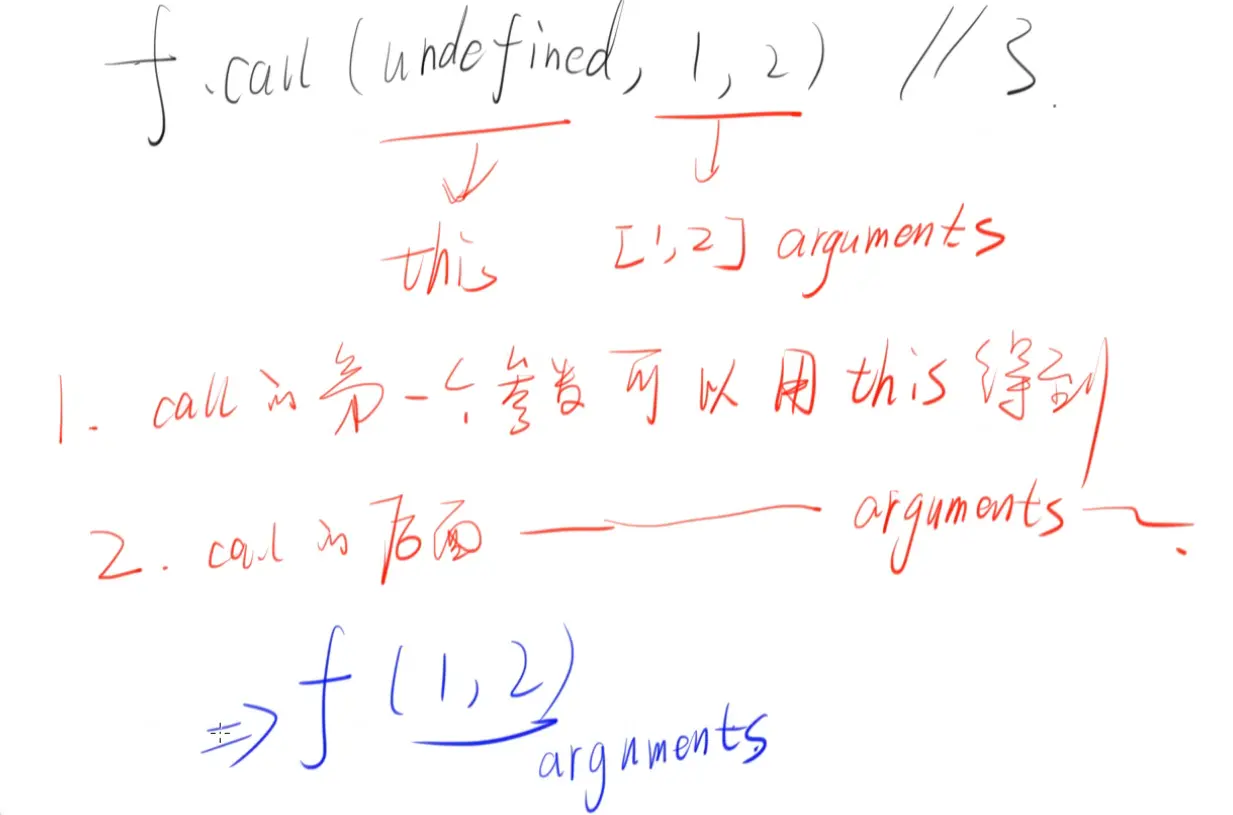 f.call(undefined, 1, 2) // 3.
this [1,2] arguments
1. call的第一个参数可以用this得到
2. call的后面 —— arguments ~.
=> f(1,2)
arguments